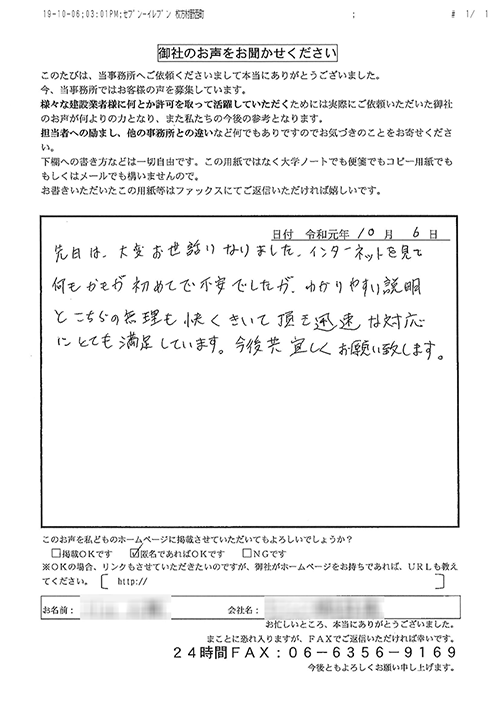 19-10-06;03:01PM;セブン-イレブン
;
# 1/ 1
御社のお声をお聞かせください
このたびは、当事務所へご依頼くださいまして本当にありがとうございました。
今、当事務所ではお客様の声を募集しています。
様々な建設業者様に何とか許可を取って活躍していただくためには実際にご依頼いただいた御社
のお声が何よりの力となり、また私たちの今後の参考となります。
担当者への励まし、他の事務所との違いなど何でもありですのでお気づきのことをお寄せくださ
い。
下欄への書き方などは一切自由です。この用紙ではなく大学ノートでも便箋でもコピー用紙でも
もしくはメールでも構いませんので。
お書きいただいたこの用紙等はファックスにてご返信いただければ嬉しいです。
日付 令和元年 10月 6日
先日は、大変お世話になりました。インターネットを見て
何もかもが初めてで不安でしたが、わかりやすい説明
とこちらの無理も快くきいて頂き迅速な対応
にとても満足しています。今後共宜しくお願い致します。
このお声を私どものホームページに掲載させていただいてもよろしいでしょうか?
□掲載OKです ☑匿名であればOKです □NGです
※OKの場合、リンクもさせていただきたいのですが、御社がホームページをお持ちであれば、URLも教え
てください。[ http:// ]
お名前: 会社名:
お忙しいところ、本当にありがとうございました。
まことに恐れ入りますが、FAXでご返信いただければ幸いです。
24時間FAX:06-6356-9169
今後ともよろしくお願い申し上げます。